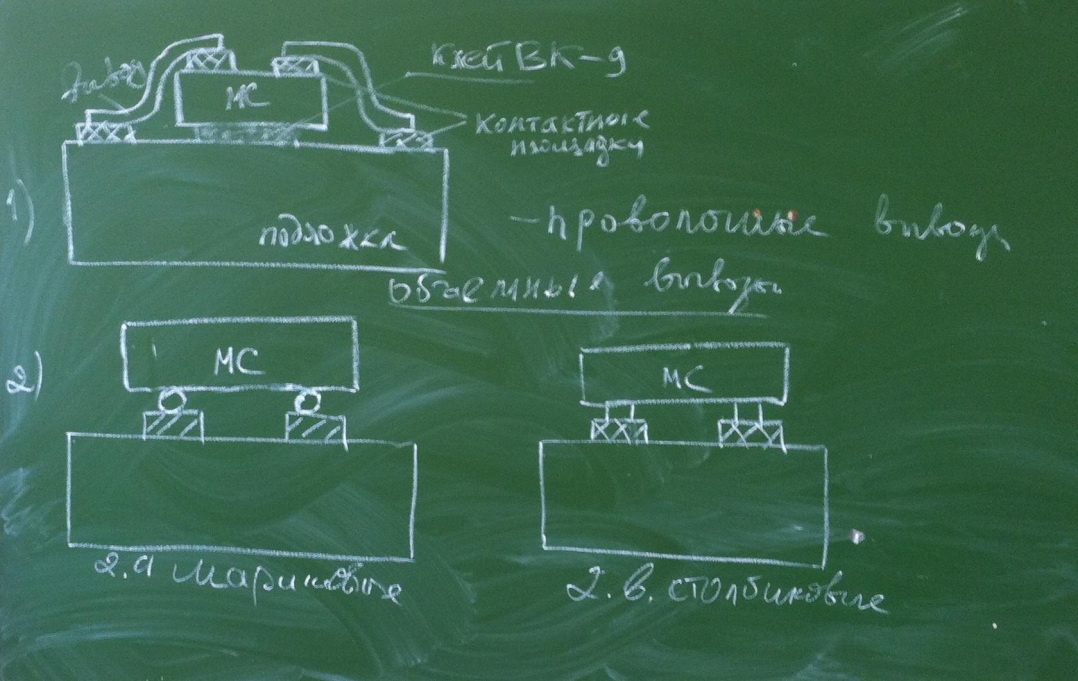 Вывод
Клей ВК-9
МС
контактные
площадки
1)
подложка
- проволочные выводы
объемные выводы
2)
МС
МС
2.а шариковые
2.в. столбиковые